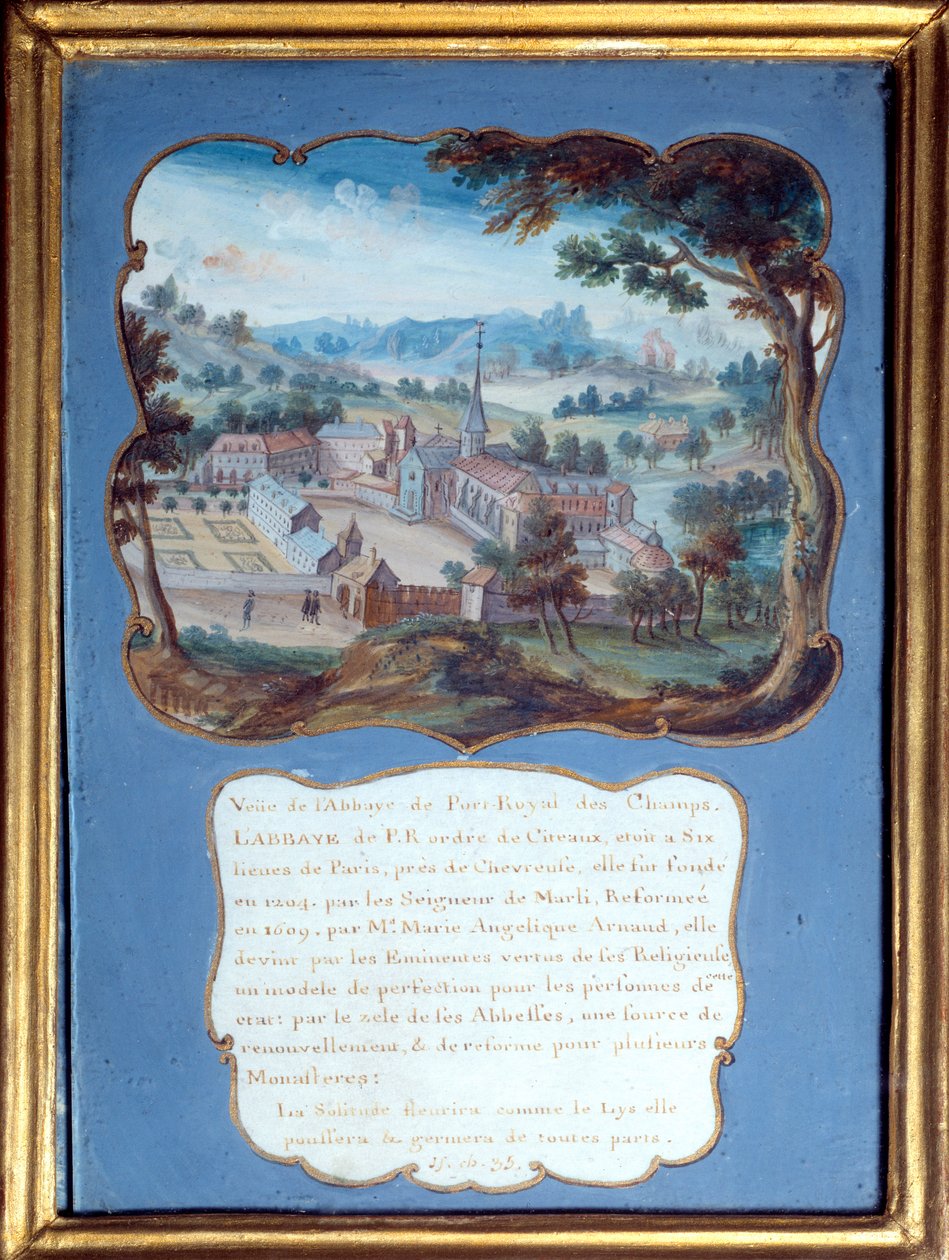 Veüe de l'Abbaye de Port-Royal des Champs.
L'ABBAYE de P.R ordre de Citeaux, etoit a Six
lieues de Paris, près de Chevreuſe, elle fut fondé
en 1204. par les Seigneur de Marli, Reformeé
en 1609. par Mᵈ Marie Angelique Arnaud, elle
devint par les Eminentes vertus de ſes Religieuſe
un modele de perfection pour les perſonnes de cette
etat: par le zele de ſes Abbeſſes, une ſource de
renouvellement, & de reforme pour pluſieurs
Monaſteres:
La Solitude fleurira comme le Lys elle
pouſſera & germera de toutes parts.
Iſ. ch. 35.